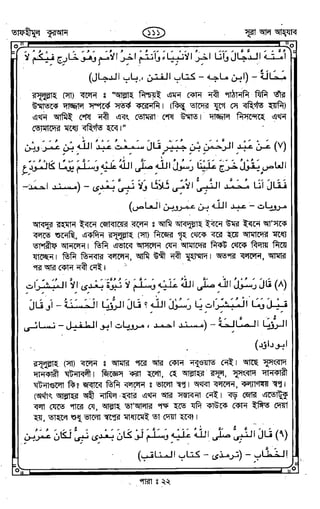 তাফহীমুল কুরআন
১১১
সূরা আল আহযাব
أمته الدجال وأنا اخر الأنبياء وأنتم اخر الأمم وهو خارج فيكم لا
محالة - (ابن ماجه - كتاب الفتن، باب الدجال)
রসূলুল্লাহ (সা) বলেন ঃ "আল্লাহ নিশ্চয়ই এমন কোন নবী পাঠাননি যিনি তাঁর
উম্মতকে দাজ্জাল সম্পর্কে সতর্ক করেননি। (কিন্তু তাদের যুগে সে বহির্গত হয়নি)
এখন আমিই শেষ নবী এবং তোমরা শেষ উম্মত। দাজ্জাল নিসন্দেহে এখন
তোমাদের মধ্যে বহির্গত হবে।"
(৭) عن عبد الرحمن بن جبير قال سمعت عبد الله بن عمرو بن
العاص يقول خرج علينا رسول الله صلى الله عليه وسلم يوما كالمودع
فقال انا محمد النبي الأمي ثلاثا ولا نبي بعدى - (مسند احمد -
مرويات - عبد الله بن عمرو بن العاص)
আবদুর রহমান ইবনে জোবায়ের বলেন ঃ আমি আবদুল্লাহ ইবনে উমর ইবনে আ'সকে
বলতে শুনেছি, একদিন রসূলুল্লাহ (সা) নিজের গৃহ থেকে বের হয়ে আমাদের মধ্যে
তাশরীফ আনলেন। তিনি এভাবে আসলেন যেন আমাদের নিকট থেকে বিদায় নিয়ে
যাচ্ছেন। তিনি তিনবার বললেন, আমি উম্মী নবী মুহাম্মাদ। অতপর বললেন, আমার
পর আর কোন নবী নেই।
(৮) قال رسول الله صلى الله عليه وسلم لا نبوة بعدى الا المبشرات
قيل وما المبشرات يا رسول الله ؟ قال الرؤيا الحسنة - او قال
الرؤيا الصالحة - (مسند احمد ، مرويات ابو الطفيل - نسائى
ابو داؤد)
রসূলুল্লাহ (সা) বলেন ঃ আমার পরে আর কোন নবুওয়াত নেই। আছে সুসংবাদ
দানকারী ঘটনাবলী। জিজ্ঞেস করা হলো, হে আল্লাহর রসূল, সুসংবাদ দানকারী
ঘটনাগুলো কি? জবাবে তিনি বললেন ঃ ভালো স্বপ্ন। অথবা বললেন, কল্যাণময় স্বপ্ন।
(অর্থাৎ আল্লাহর অহী নাযিল হবার এখন আর সম্ভাবনা নেই। বড় জোর এতোটুকু
বলা যেতে পারে যে, আল্লাহ তা'আলার পক্ষ হতে যদি কাউকে কোন ইঙ্গিত দেয়া
হয়, তাহলে শুধু ভালো স্বপ্নের মাধ্যমেই তা দেয়া হবে।
(৯) قال النبي صلى الله عليه وسلم لو كان بعدى نبي لكان عمر بن
الخطاب - (ترمذى - كتاب المناقب)
পারা ঃ ২২